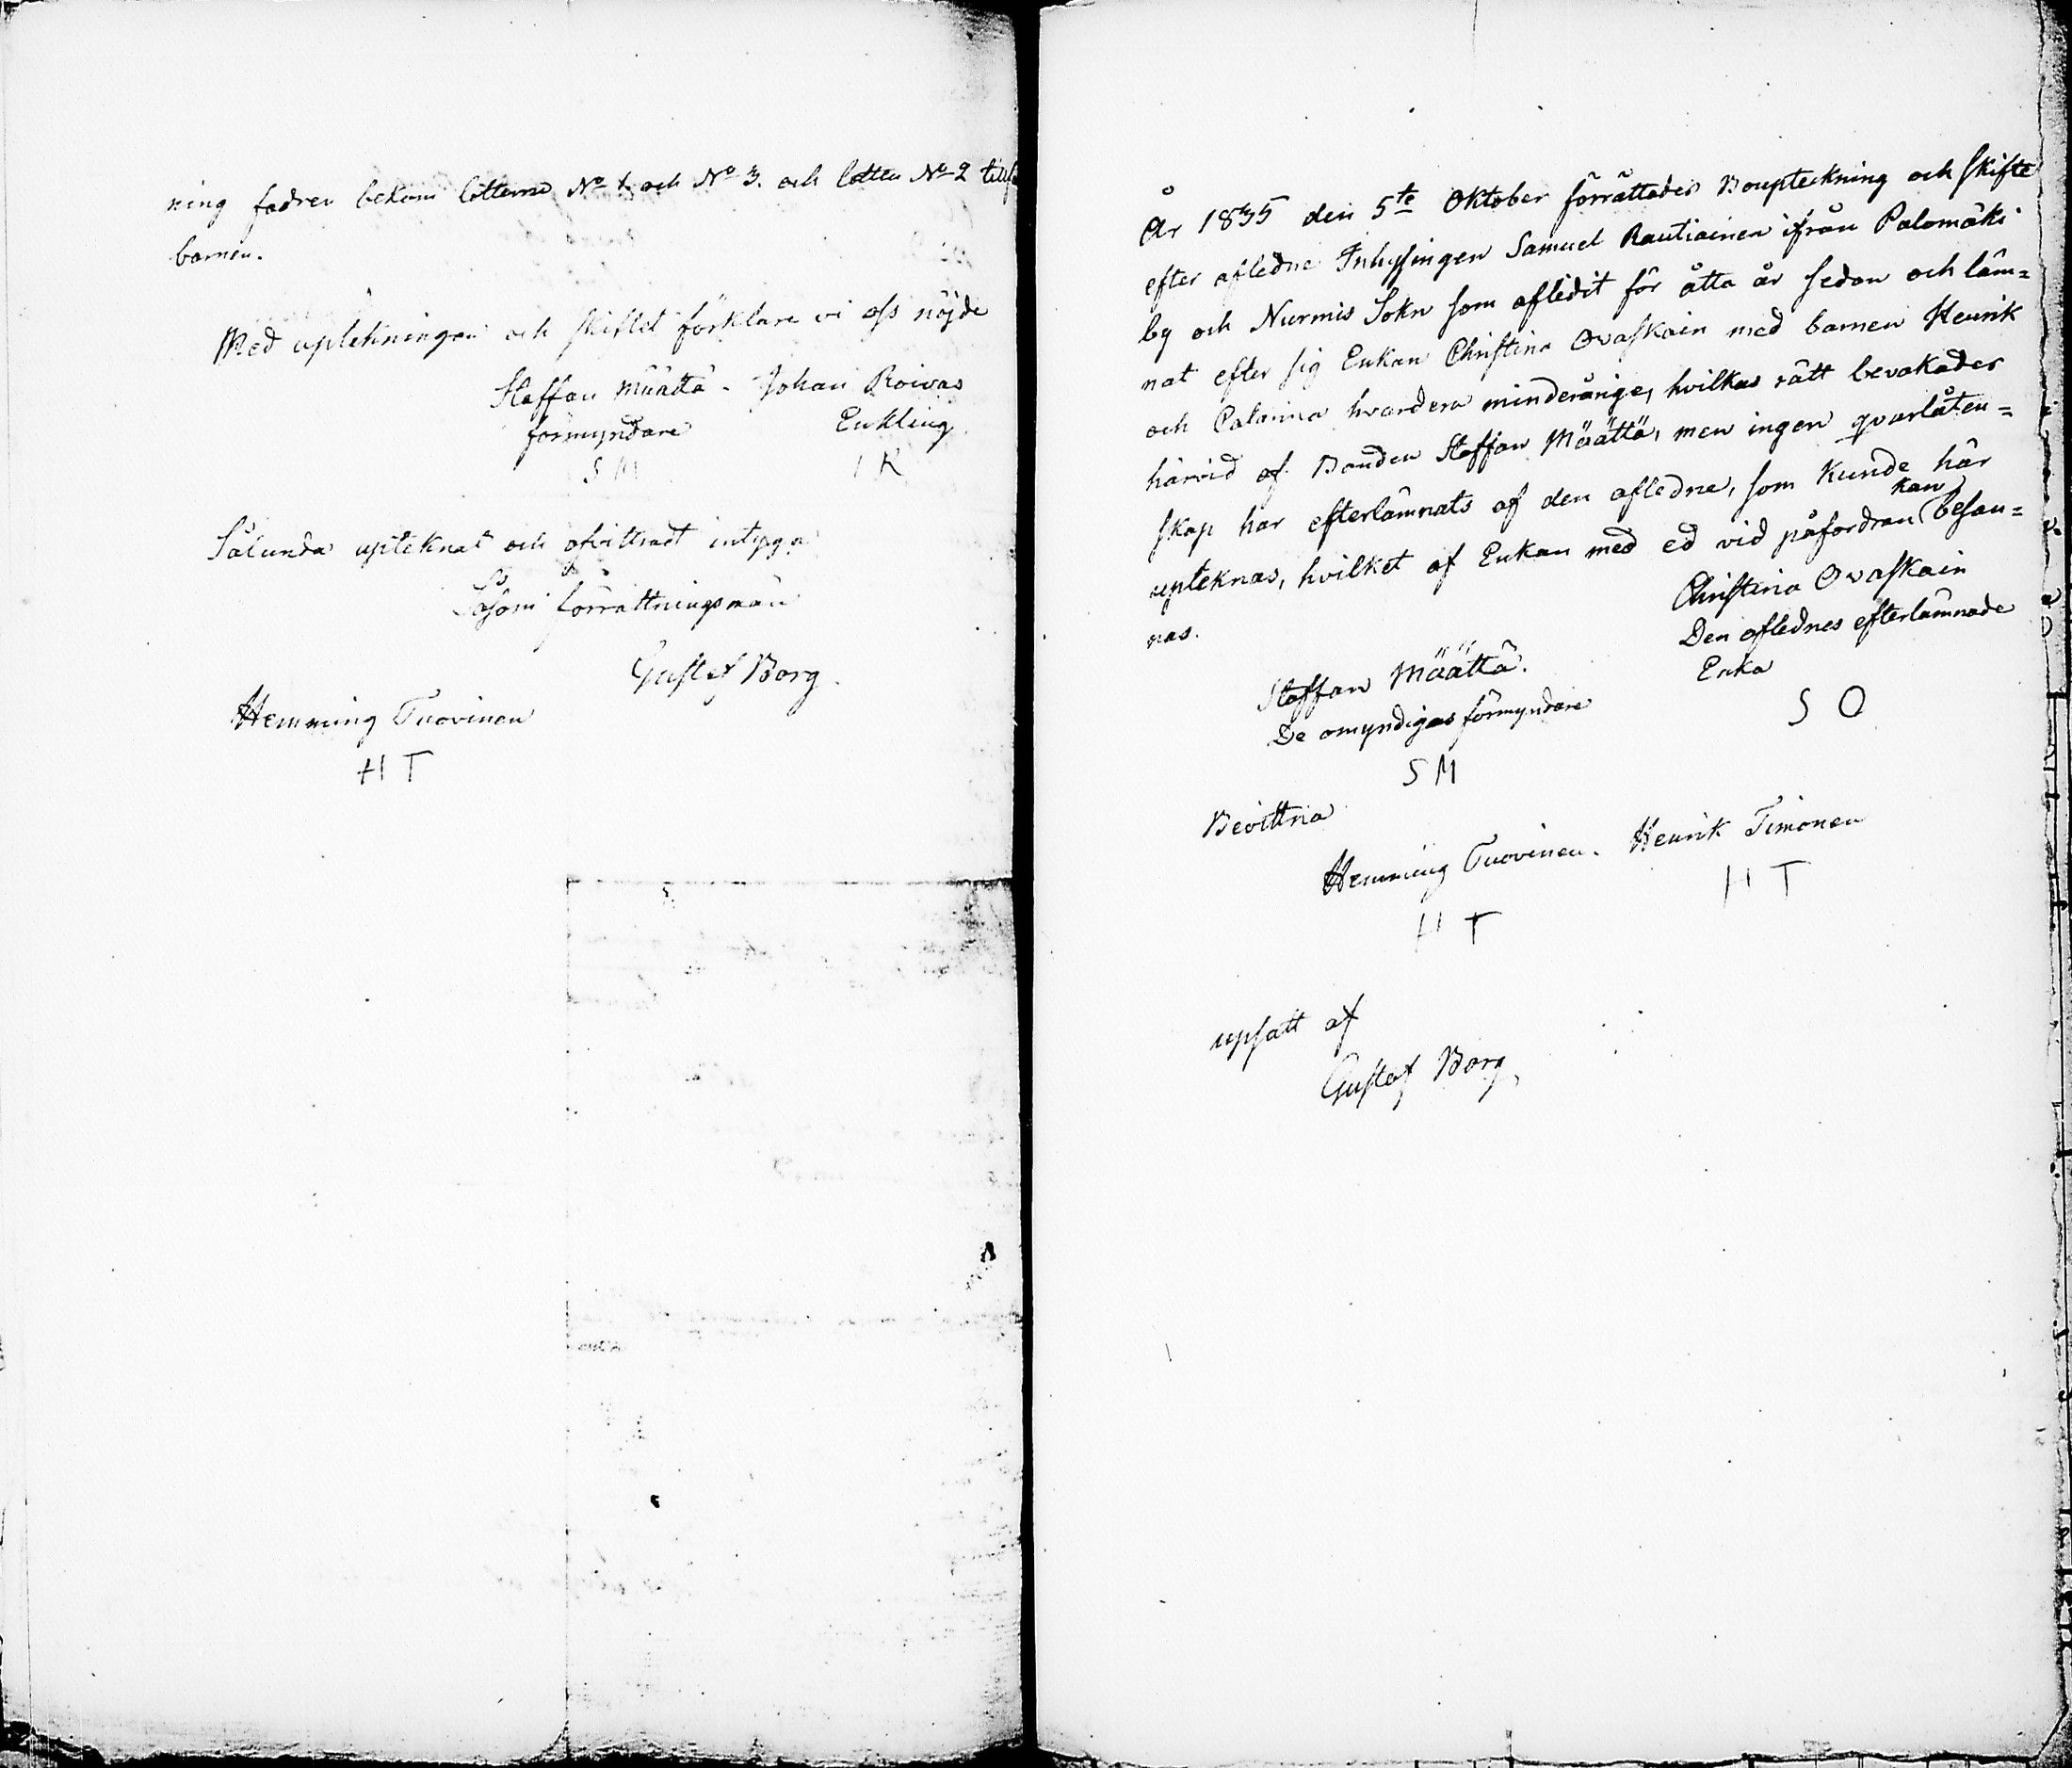 ning fadren bekom lotterne No 1 och No 3. och lotten No 2
barnen.
Med uptekningen och skiftet förklare vi oss nöjde
Staffan Määttä. Johan Roivas
förmyndare Enkling
S M I R
Sålunda upteknat och afvittradt intyga
Såsom förrättningsmän
Gustaf Borg.
Hemming Tuovinen
H T
År 1835 den 5te Oktober förrättades Boupteckning och skifte
efter afledne Inhysingen Samuel Rautiainen ifrån Palomäki
by och Nurmis Sokn som afledit för åtta år sedan och läm=
nat efter sig Enkan Christina Ovaskain med barnen Henrik
och Catarina hvardera minderånge, hvilkas rätt bevakades
härvid af Bonden Staffan Määttä, men ingen qvarlåten=
skap har efterlämnats af den afledne, som kunde här
upteknas, hvilket af Enkan med ed vid påfordran kan besan=
nas.
Christina Ovaskain
Den aflednes efterlämnade
Enka
S O
Staffan Määttä.
De omyndigas förmyndare
S M
Bevittna
Hemming Tuovinen. Henrik Timonen
H T H T
upsatt af
Gustaf Borg,